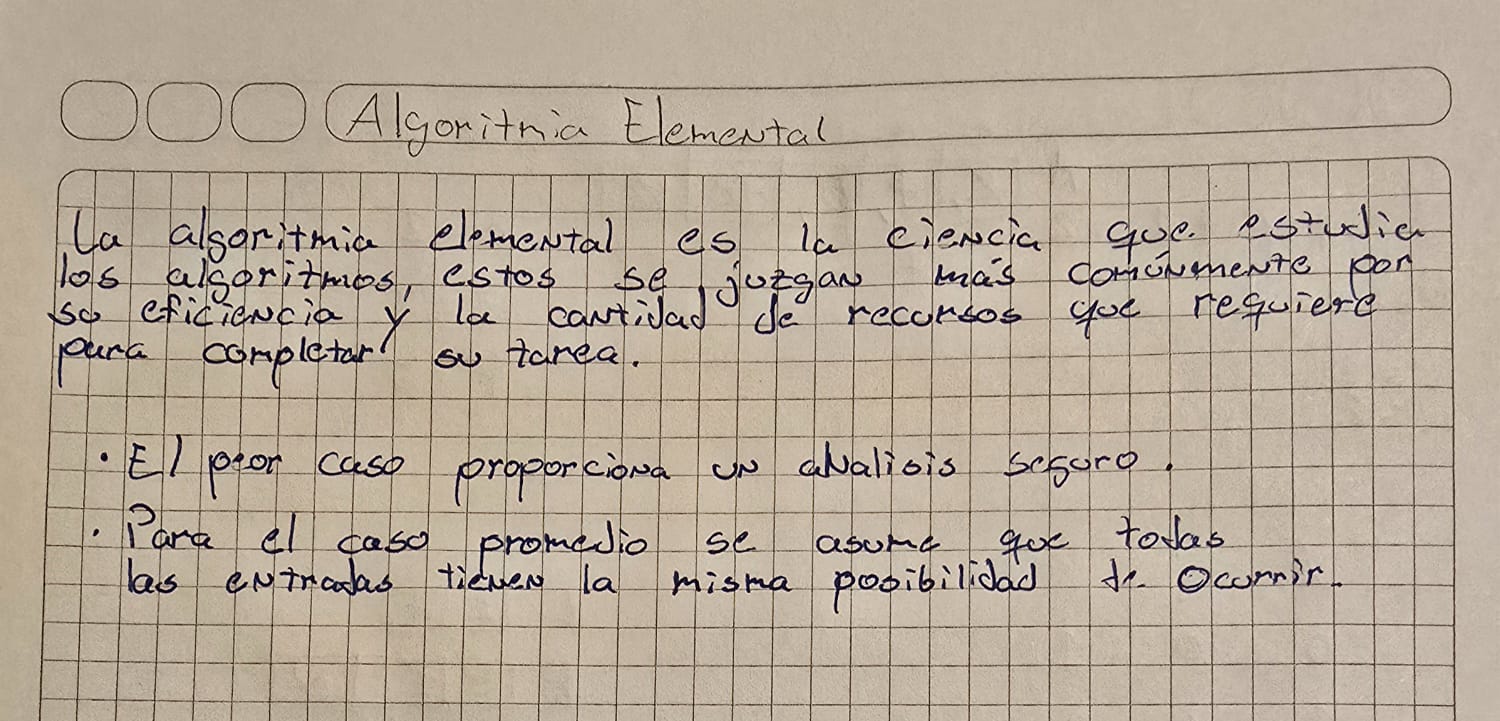 Algoritmia Elemental
La algoritmia elemental es la ciencia que estudia
los algoritmos, estos se juzgan más comúnmente por
su eficiencia y la cantidad de recursos que requiere
para completar su tarea.
· El peor caso proporciona un analisis seguro.
· Para el caso promedio se asume que todas
las entradas tienen la misma posibilidad de ocurrir.